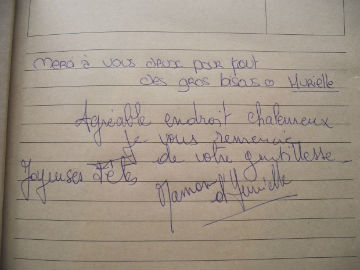 Merci à vous deux pour tout
des gros bisous Murielle
Agréable endroit chaleureux
je vous remercie
de votre gentillesse
Joyeuses Fêtes
Maman d'Murielle